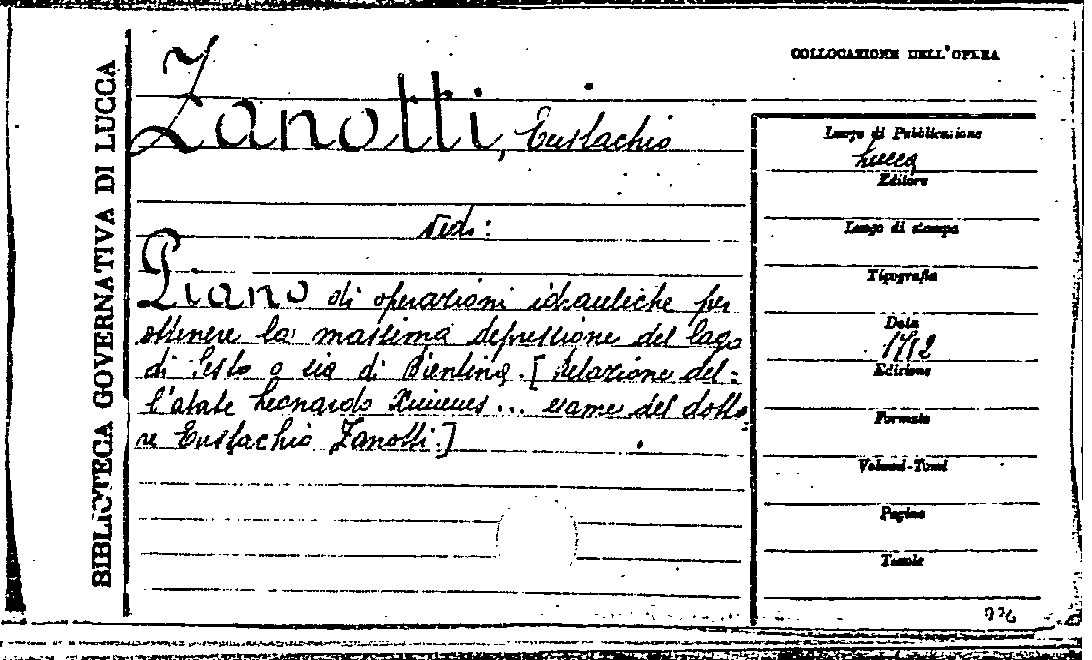 BIBLIOTECA GOVERNATIVA DI LUCCA
COLLOCAZIONE DELL'OPERA
Zanotti, Eustachio
Vedi:
Piano di operazioni idrauliche per
ottenere la massima depressione del lago
di Sesto o sia di Bientina. [Relazione del=
l'abate Leonardo Ximenes... esame del dotto
re Eustachio Zanotti.]
Luogo di Pubblicazione
Lucca
Editore
Luogo di stampa
Tipografia
Data
1782
Edizione
Formato
Volumi-Tomi
Pagine
Tavole